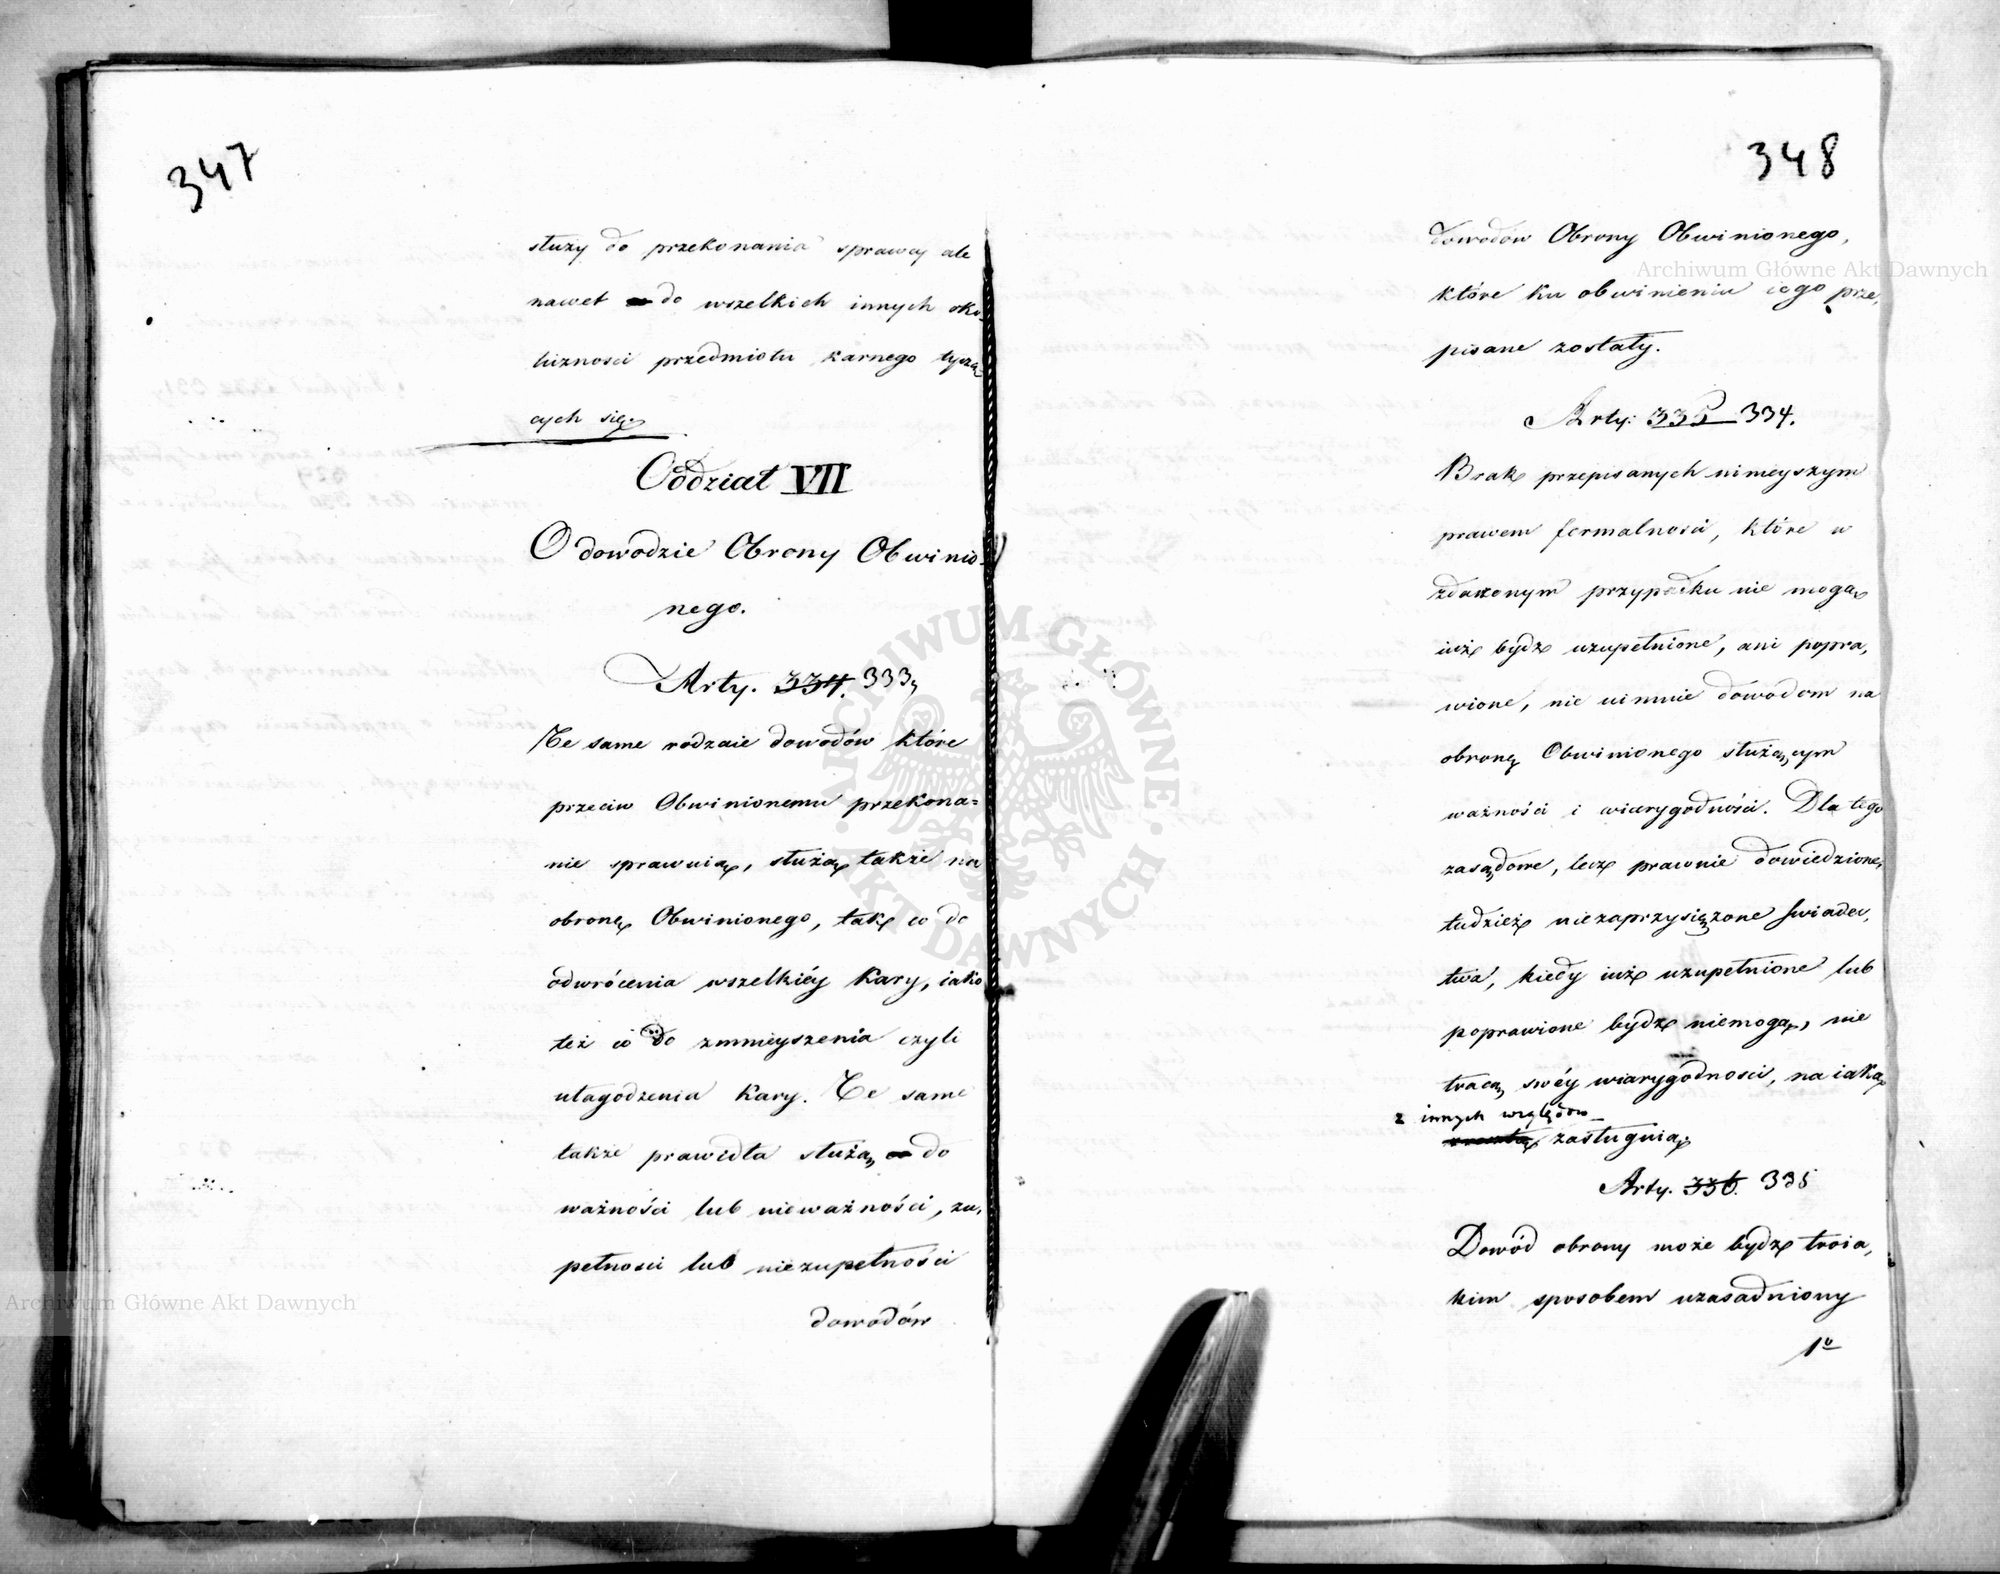 347
służy do przekonania sprawcy ale
nawet do wszelkich innych oko-
liczności przedmiotu karnego tyczą-
cych się.
Oddział VII
O dowodzie Obrony Obwinio-
nego.
Arty. 334. 333,
Te same rodzaie dowodów które
przeciw Obwinionemu przekona=
nie sprawuią, służą także na
obronę Obwinionego, tak co do
odwrócenia wszelkiéy Kary, iako
też co do zmnieyszenia czyli
ułagodzenia Kary. Te same
także prawidła służą do
ważności lub nieważności, zu,
pełności lub niezupełności
dowodów
348
dowodów Obrony Obwinionego,
które ku obwinieniu iego prze,
pisane zostały.
Arty: 335 334.
Brak przepisanych ninieyszym
prawem formalności, które w
zdarzonym przypadku nie mogą
iuż bydź uzupełnione, ani popra,
wione, nie uimuie dowodom na
obronę Obwinionego służącym
ważności i wiarygodności. Dla tego
zasądowe, lecz prawnie dowiedzione,
tudzież niezaprzysiężone świadec,
twa, kiedy iuż uzupełnione lub
poprawione bydź niemogą, nie
tracą swéy wiarygodności, na iaką
z innych względów
zasługuią.
Arty. 336. 335
Dowód obrony może bydź troia,
kim sposobem uzasadniony
1º
Archiwum Główne Akt Dawnych
Archiwum Główne Akt Dawnych
ARCHIWUM GŁÓWNE · AKT DAWNYCH ·